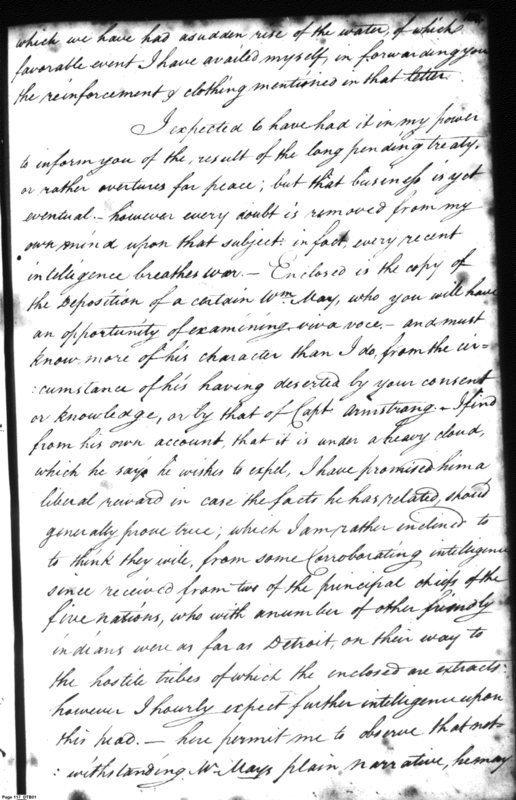 which we have had a sudden rise of the water, of which
favorable event I have availed myself, in forwarding you
the reinforcement & clothing mentioned in that letter.
I expected to have had it in my power
to inform you of the, result of the long pending treaty,
or rather overtures for peace; but that business is yet
eventual. - however every doubt is removed from my
own mind upon that subject: in fact, every recent
intelligence breathes war. - Enclosed is the copy of
the Deposition of a certain Wm. May, who you will have
an opportunity of examining viva voce, - and must
know, more of his character than I do, from the cir=
:cumstance of his having deserted by your consent
or knowledge, or by that of Capt. Armstrong. - I find
from his own account, that it is under a heavy cloud,
which he says he wishes to expel, I have promised him a
liberal reward in case the facts he has related, should
generally prove true; which I am rather inclined to
to think they will, from some Corroborating intelligence
since received from two of the principal chiefs of the
five nations, who with a number of other friendly
indians were as far as Detroit, on their way to
the hostile tribes of which the enclosed are extracts:
however I hourly expect further intelligence upon
this head. - here permit me to observe that not-
: withstanding Mr. Mays plain narrative, he may
Page 117 DTB01